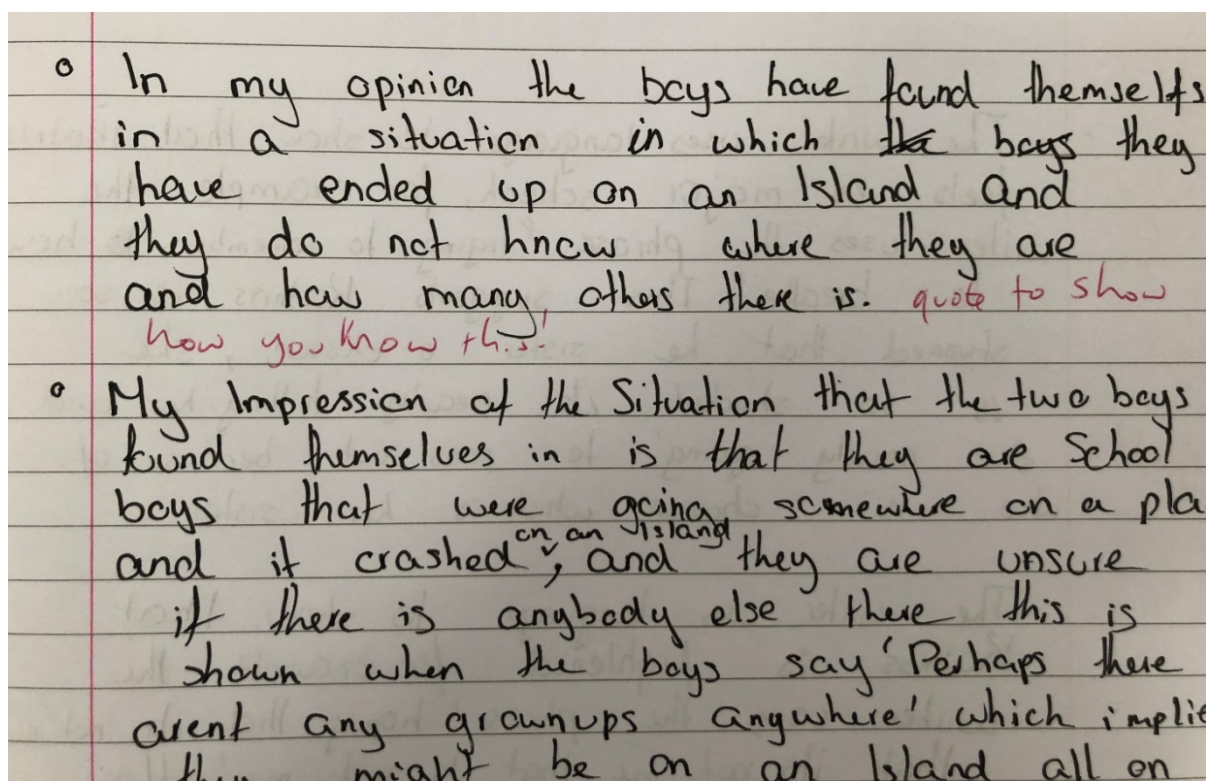 In my opinion the boys have found themselfs
in a situation in which the boys they
have ended up on an Island and
they do not know where they are
and how many others there is. quote to show
how you know this!
My Impression of the Situation that the two boys
found themselves in is that they are School
boys that were going somewhere on a pla
on an Island
and it crashed, and they are unsure
if there is anybody else there this is
shown when the boys say 'Perhaps there
arent any grownups anywhere' which implie
they might be on an Island all on